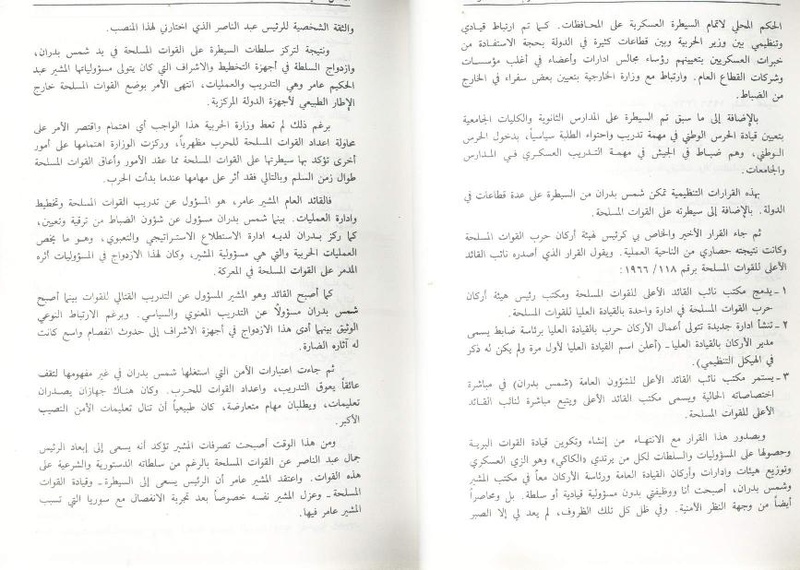 الحكم المحلي لاتمام السيطرة العسكرية على المحافظات. كما تم ارتباط قيادي
وتنظيمي بين وزير الحربية وبين قطاعات كثيرة في الدولة بحجة الاستفادة من
خبرات العسكريين بتعيينهم رؤساء مجالس ادارات وأعضاء في أغلب مؤسسات
وشركات القطاع العام. وارتباط مع وزارة الخارجية بتعيين بعض سفراء في الخارج
من الضباط.
بالإضافة إلى ما سبق تم السيطرة على المدارس الثانوية والكليات الجامعية
بتعيين قيادة الحرس الوطني في مهمة تدريب واحتواء الطلبة سياسياً، بدخول الحرس
الوطني، وهم ضباط في الجيش في مهمة التدريب العسكري في المدارس
والجامعات.
بهذه القرارات التنظيمية تمكن شمس بدران من السيطرة على عدة قطاعات في
الدولة. بالإضافة إلى سيطرته على القوات المسلحة.
ثم جاء القرار الأخير والخاص بي كرئيس لهيئة أركان حرب القوات المسلحة
وكانت نتيجته حصاري من الناحية العملية. ويقول القرار الذي أصدره نائب القائد
الأعلى للقوات المسلحة برقم ١١٨/ ١٩٦٦:
١ - يدمج مكتب نائب القائد الأعلى للقوات المسلحة ومكتب رئيس هيئة أركان
حرب القوات المسلحة في ادارة واحدة بالقيادة العليا للقوات المسلحة.
٢ - تنشأ ادارة جديدة تتولى أعمال الأركان حرب بالقيادة العليا برئاسة ضابط يسمى
مدير الأركان بالقيادة العليا - (أعلن اسم القيادة العليا لأول مرة ولم يكن له ذكر
في الهيكل التنظيمي).
٣ - يستمر مكتب نائب القائد الأعلى للشؤون العامة (شمس بدران) في مباشرة
اختصاصاته الحالية ويسمى مكتب القائد الأعلى ويتبع مباشرة لنائب القائد
الأعلى للقوات المسلحة.
وبصدور هذا القرار مع الانتهاء من إنشاء وتكوين قيادة القوات البرية
وحصولها على المسؤوليات والسلطات لكل من يرتدي «الكاكي» وهو الزي العسكري
وتوزيع هيئات وادارات وأركان القيادة العامة ورئاسة الأركان معاً في مكتب المشير
وشمس بدران، أصبحت أنا ووظيفتي بدون مسؤولية قيادية أو سلطة. بل ومحاصراً
أيضاً من وجهة النظر الأمنية. وفي ظل كل تلك الظروف، لم يعد لي إلا الصبر
والثقة الشخصية للرئيس عبد الناصر الذي اختارني لهذا المنصب.
ونتيجة لتركز سلطات السيطرة على القوات المسلحة في يد شمس بدران،
وازدواج السلطة في أجهزة التخطيط والاشراف التي كان يتولى مسؤولياتها المشير عبد
الحكيم عامر وهي التدريب والعمليات، انتهى الأمر بوضع القوات المسلحة خارج
الإطار الطبيعي لأجهزة الدولة المركزية.
برغم ذلك لم تعط وزارة الحربية هذا الواجب أي اهتمام واقتصر الأمر على
محاولة اعداد القوات المسلحة للحرب مظهرياً، وركزت الوزارة اهتمامها على أمور
أخرى تؤكد بها سيطرتها على القوات المسلحة مما عقد الأمور وأعاق القوات المسلحة
طوال زمن السلم وبالتالي فقد أثر على مهامها عندما بدأت الحرب.
فالقائد العام المشير عامر، هو المسؤول عن تدريب القوات المسلحة وتخطيط
وادارة العمليات. بينما شمس بدران مسؤول عن شؤون الضباط من ترقية وتعيين،
كما ركز بدران لديه ادارة الاستطلاع الاستراتيجي والتعبوي، وهو ما يخص
العمليات الحربية والتي هي مسؤولية المشير، وكان لهذا الازدواج في المسؤوليات أثره
المدمر على القوات المسلحة في المعركة.
كما أصبح القائد وهو المشير المسؤول عن التدريب القتالي للقوات بينما أصبح
شمس بدران مسؤولاً عن التدريب المعنوي والسياسي. وبرغم الارتباط النوعي
الوثيق بينهما أدى هذا الازدواج في أجهزة الاشراف إلى حدوث انفصام واسع كانت
له آثاره الضارة.
ثم جاءت اعتبارات الأمن التي استغلها شمس بدران في غير مفهومها لتقف
عائقاً يعوق التدريب، واعداد القوات للحرب. وكان هناك جهازان يصدران
تعليمات، ويطلبان مهام متعارضة، كان طبيعياً أن تناله تعليمات الأمن النصيب
الأكبر.
ومن هذا الوقت أصبحت تصرفات المشير تؤكد أنه يسعى إلى إبعاد الرئيس
جمال عبد الناصر عن القوات المسلحة بالرغم من سلطاته الدستورية والشرعية على
هذه القوات. واعتقد المشير عامر أن الرئيس يسعى إلى السيطرة - وقيادة القوات
المسلحة - وعزل المشير نفسه خصوصاً بعد تجربة الانفصال مع سوريا التي تسبب
المشير عامر فيها.